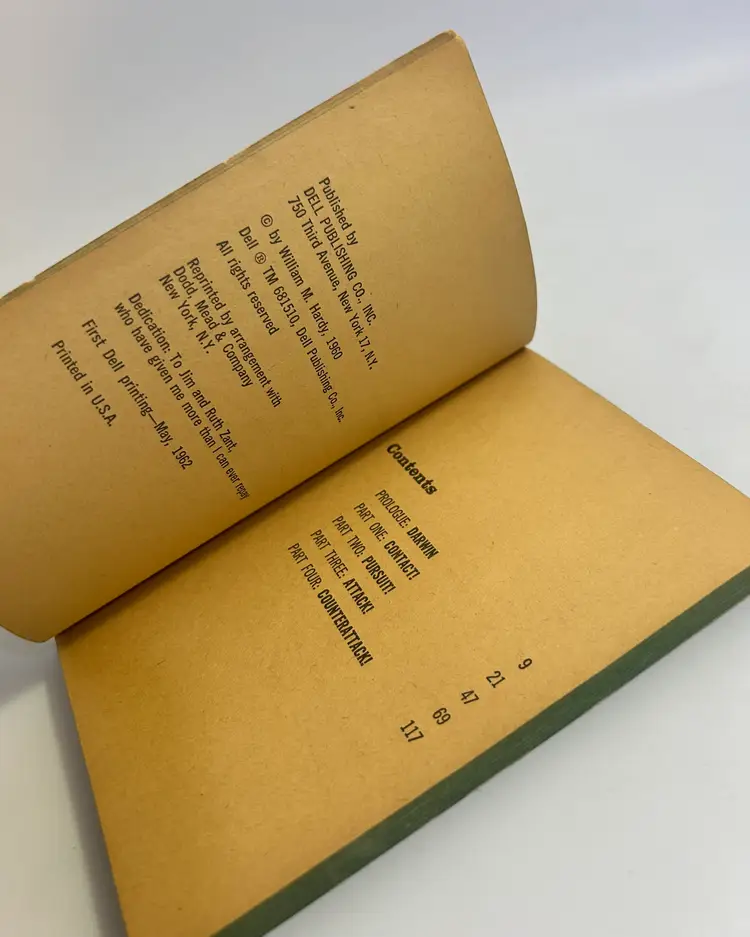 Published by
DELL PUBLISHING CO., INC.
750 Third Avenue, New York 17, N.Y.
© by William M. Hardy, 1960
Dell ® TM 681510, Dell Publishing Co., Inc.
All rights reserved
Reprinted by arrangement with
Dodd, Mead & Company
New York, N.Y.
Dedication: To Jim and Ruth Zant,
who have given me more than I can ever repay
First Dell printing—May, 1962
Printed in U.S.A.
Contents
PROLOGUE: DARWIN 9
PART ONE: CONTACT! 21
PART TWO: PURSUIT! 47
PART THREE: ATTACK! 69
PART FOUR: COUNTERATTACK! 117